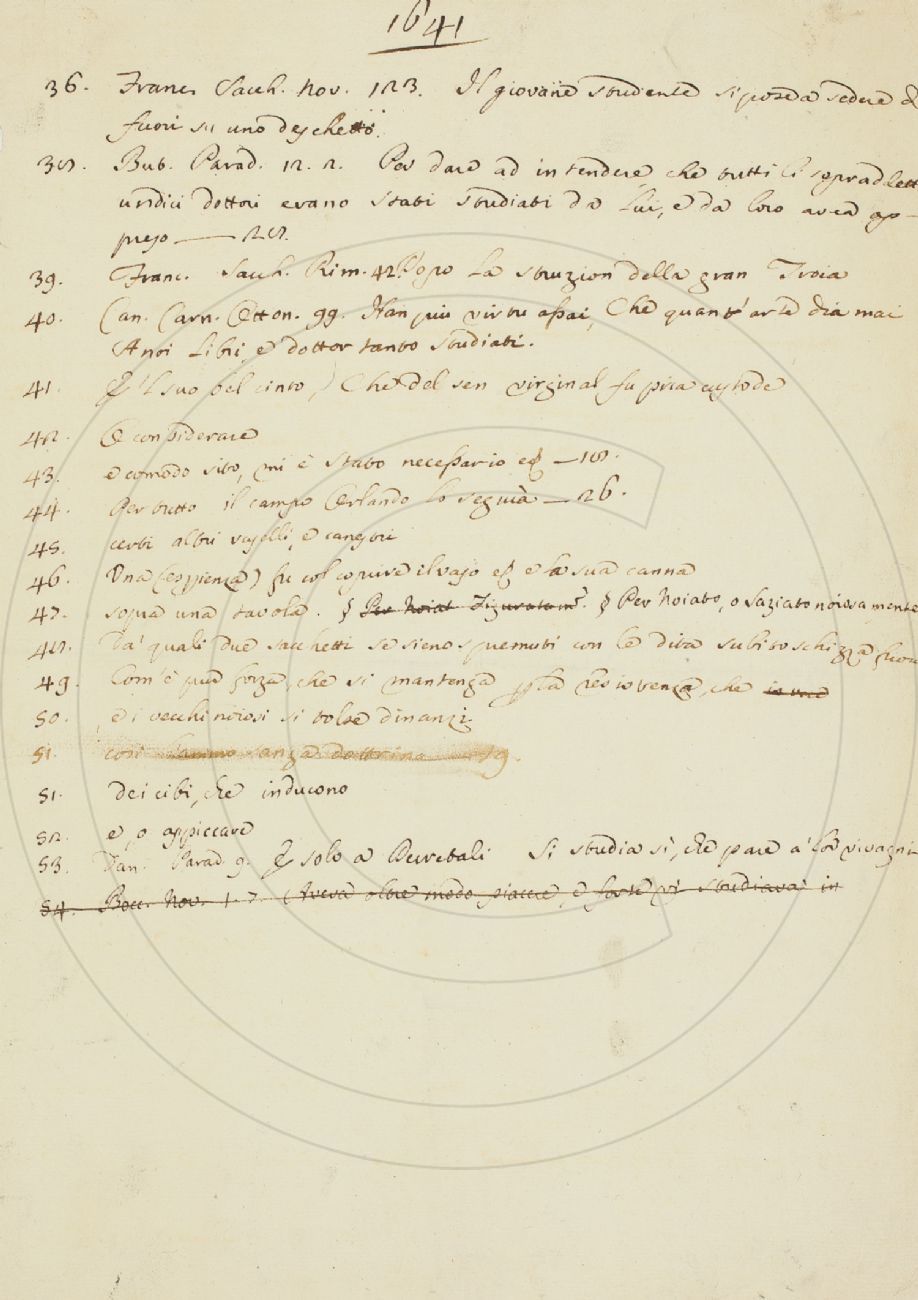 1641
36. Franc. Sacch. nov. 123. Il giovane studente si ponea sedere di
fuori su uno deschetto.
38. But. Parad. 12. 2. Per dare ad intendere, che tutti li sopraddetti
undici dottori erano stati studiati da lui, e da loro avea ap-
preso — 28.
39. Franc. Sacch. Rim. 42. Dopo la struzion della gran Troia
40. Can. Carn. Otton. 99. Han più virtù assai, Che quant' arte dia mai
A noi libri, e dottor tanto studiati.
41. E 'l suo bel cinto, Che del sen virginal fu pria custode
42. O considerare
43. e comodo sito, mi è stato necessario ec — 18.
44. Per tutto il campo Orlando lo seguìa — 26.
45. certi altri vaselli, e canestri
46. Una (esperienza) fu col coprire il vaso ec e la sua canna
47. sopra una tavola. § Per Noiat. Figuratam. § Per Noiato, o saziato noiosamente
48. Da' quali due sacchetti se sieno spremuti con le dita subito schizza fuori
49. Com'è pura forza, che si mantenga per la resistenza, che
50. e i vecchi noiosi si volse dinanzi
51. così sanza dottrina 19.
51. dei cibi, che inducono
52. e, o appiccare
53. Dan. Parad. 9. E solo a Decretali Si studia sì, che pare a' lor vivagni
54. Bocc. Nov. 1. 7. (Aveva oltre modo piacere, e forte vi studiava) in